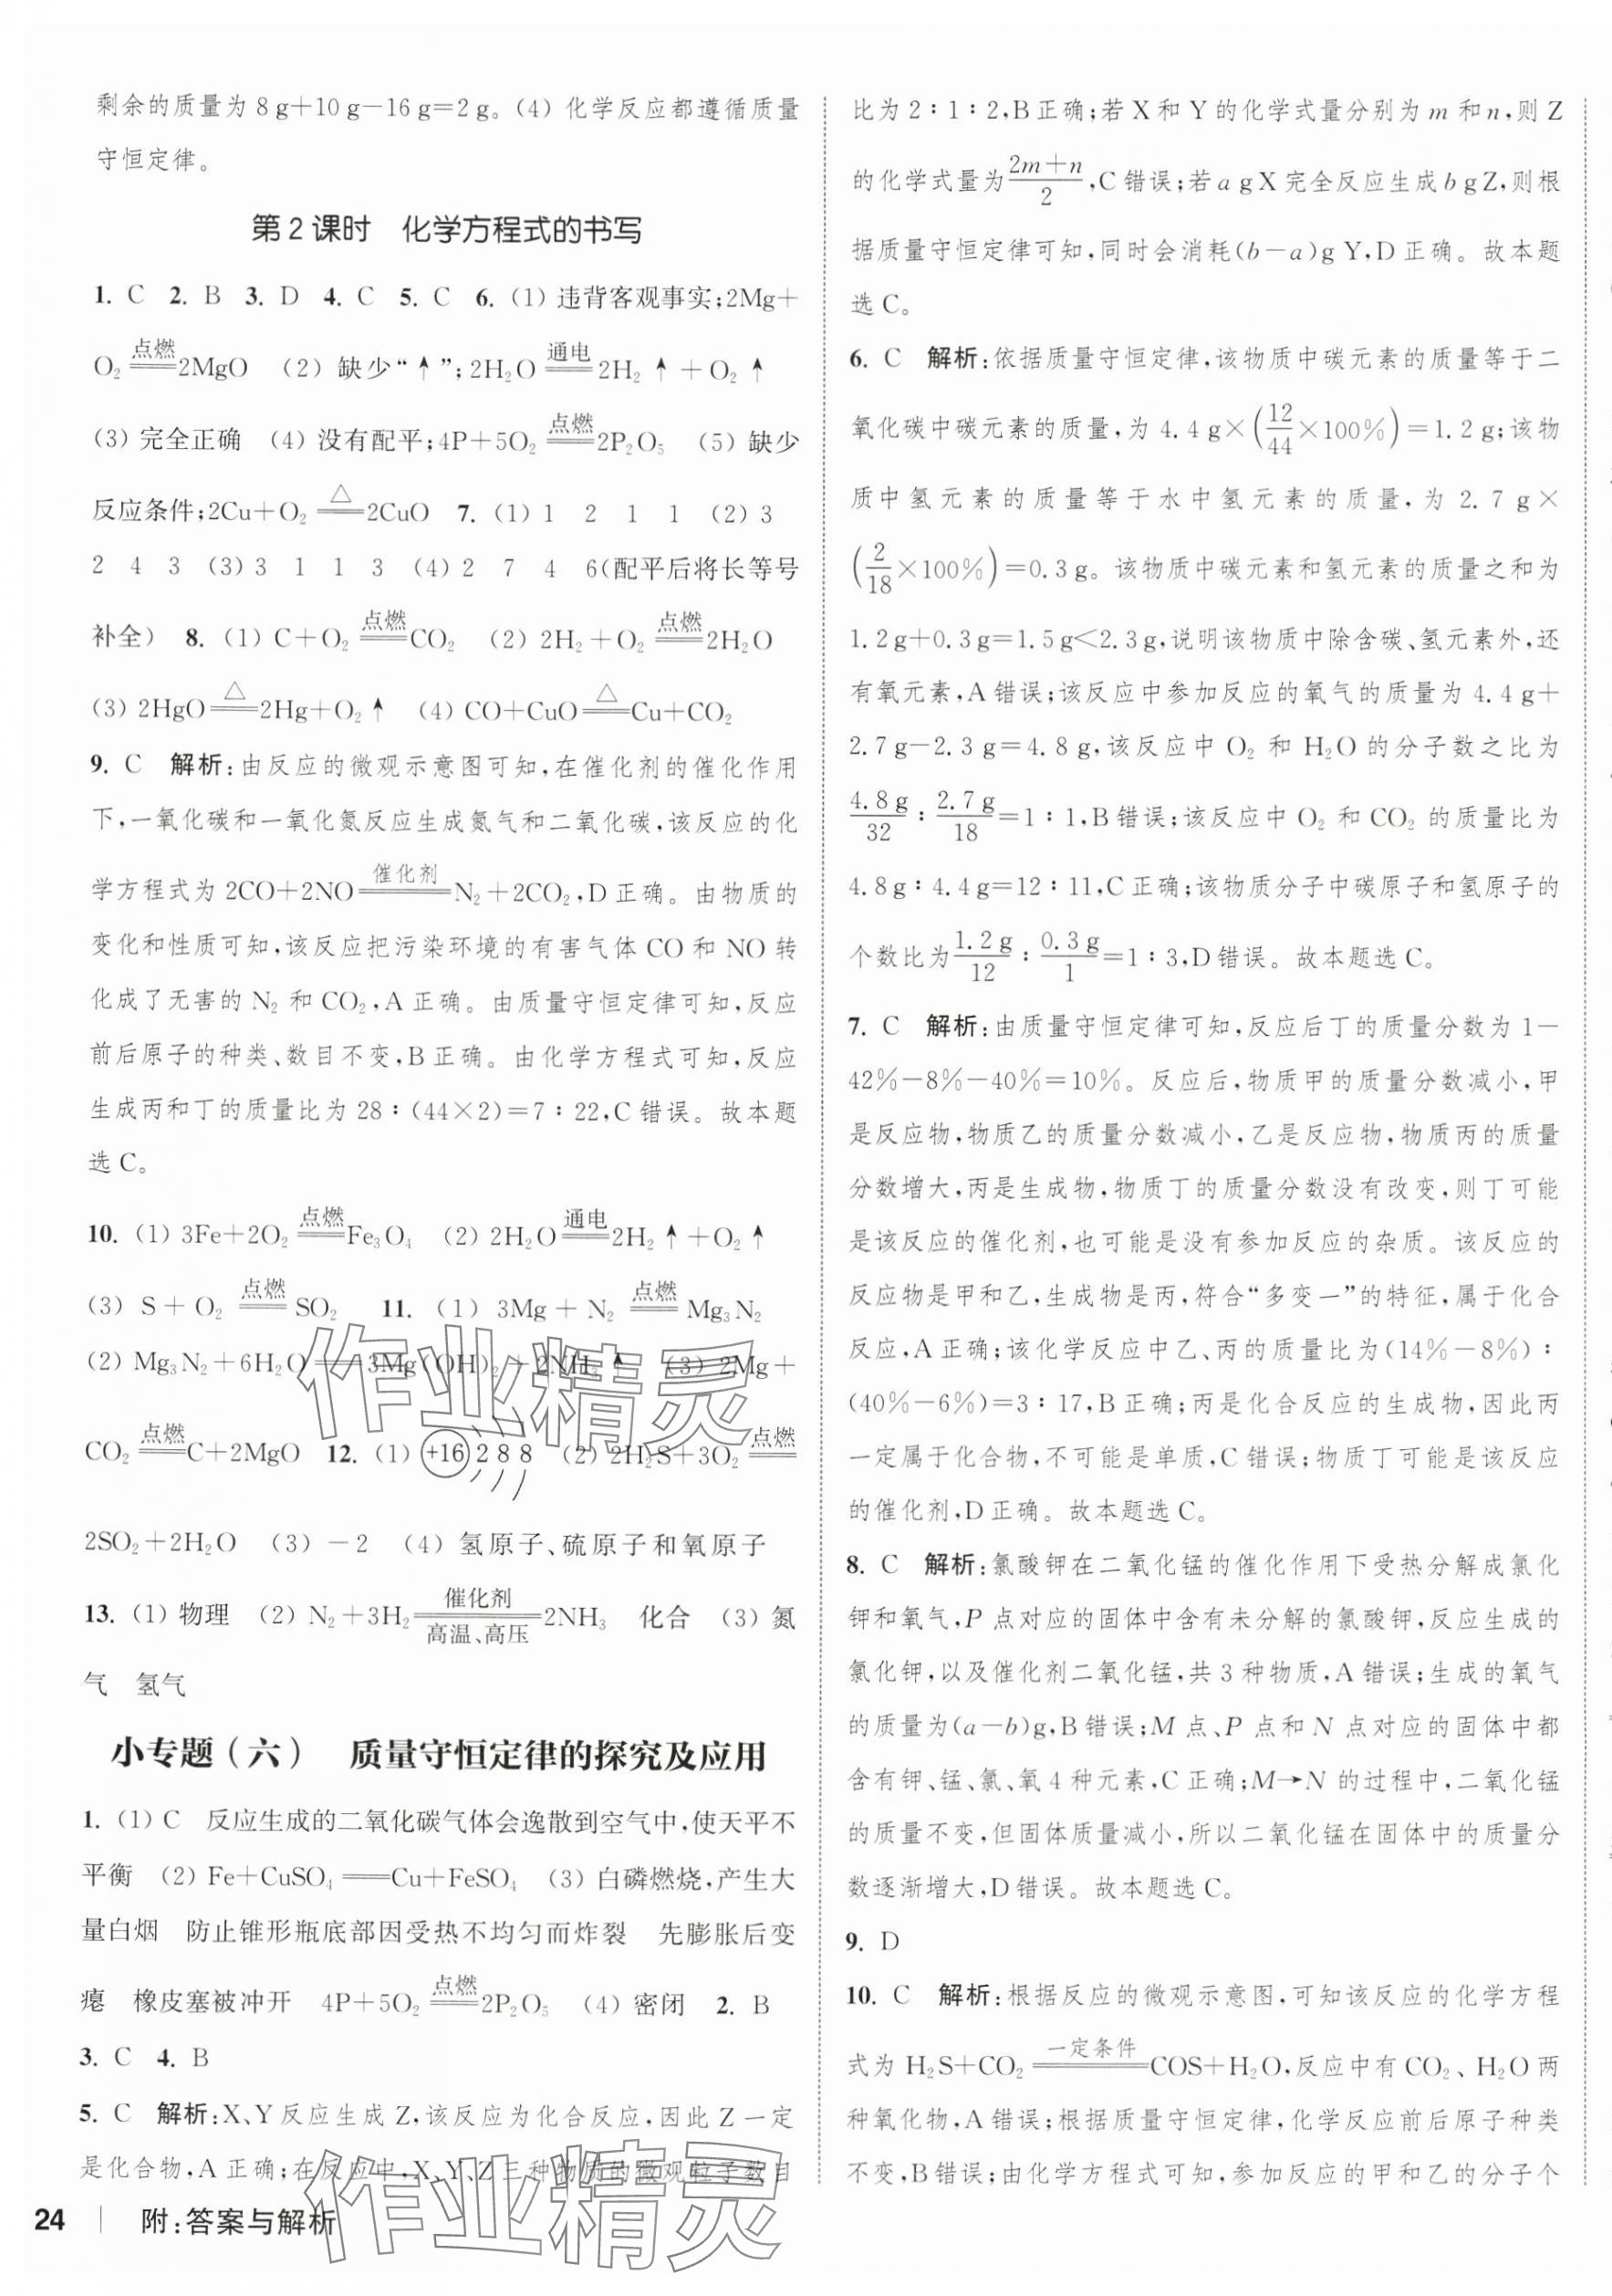 剩余的质量为8 g+10 g-16 g=2 g。(4) 化学反应都遵循质量
守恒定律。
第2课时 化学方程式的书写
1. C 2. B 3. D 4. C 5. C 6. (1) 违背客观事实;2Mg+
O₂ =点燃= 2MgO (2) 缺少“↑”;2H₂O =通电= 2H₂↑+O₂↑
(3) 完全正确 (4) 没有配平;4P+5O₂ =点燃= 2P₂O₅ (5) 缺少
反应条件;2Cu+O₂ =△= 2CuO 7. (1) 1 2 1 1 (2) 3
2 4 3 (3) 3 1 1 3 (4) 2 7 4 6(配平后将长等号
补全) 8. (1) C+O₂ =点燃= CO₂ (2) 2H₂+O₂ =点燃= 2H₂O
(3) 2HgO =△= 2Hg+O₂↑ (4) CO+CuO =△= Cu+CO₂
9. C 解析:由反应的微观示意图可知,在催化剂的催化作用
下,一氧化碳和一氧化氮反应生成氮气和二氧化碳,该反应的化
学方程式为 2CO+2NO =催化剂= N₂+2CO₂,D正确。由物质的
变化和性质可知,该反应把污染环境的有害气体 CO 和 NO 转
化成了无害的 N₂ 和 CO₂,A 正确。由质量守恒定律可知,反应
前后原子的种类、数目不变,B正确。由化学方程式可知,反应
生成丙和丁的质量比为 28∶(44×2)=7∶22,C错误。故本题
选C。
10. (1) 3Fe+2O₂ =点燃= Fe₃O₄ (2) 2H₂O =通电= 2H₂↑+O₂↑
(3) S+O₂ =点燃= SO₂ 11. (1) 3Mg+N₂ =点燃= Mg₃N₂
(2) Mg₃N₂+6H₂O══3Mg(OH)₂+2NH₃↑ (3) 2Mg+
CO₂ =点燃= C+2MgO 12. (1) +16 2 8 8 (2) 2H₂S+3O₂ =点燃=
2SO₂+2H₂O (3) -2 (4) 氢原子、硫原子和氧原子
13. (1) 物理 (2) N₂+3H₂ =催化剂/高温、高压= 2NH₃ 化合 (3) 氮
气 氢气
小专题(六) 质量守恒定律的探究及应用
1. (1) C 反应生成的二氧化碳气体会逸散到空气中,使天平不
平衡 (2) Fe+CuSO₄══Cu+FeSO₄ (3) 白磷燃烧,产生大
量白烟 防止锥形瓶底部因受热不均匀而炸裂 先膨胀后变
瘪 橡皮塞被冲开 4P+5O₂ =点燃= 2P₂O₅ (4) 密闭 2. B
3. C 4. B
5. C 解析:X、Y反应生成Z,该反应为化合反应,因此Z一定
是化合物,A正确;在反应中,X、Y、Z三种物质的微观粒子数目
24 附:答案与解析
比为2∶1∶2,B正确;若X和Y的化学式量分别为m和n,则Z
的化学式量为(2m+n)/2,C错误;若a g X完全反应生成b g Z,则根
据质量守恒定律可知,同时会消耗(b-a)g Y,D正确。故本题
选C。
6. C 解析:依据质量守恒定律,该物质中碳元素的质量等于二
氧化碳中碳元素的质量,为4.4 g×(12/44×100%)=1.2 g;该物
质中氢元素的质量等于水中氢元素的质量,为2.7 g×
(2/18×100%)=0.3 g。该物质中碳元素和氢元素的质量之和为
1.2 g+0.3 g=1.5 g<2.3 g,说明该物质中除含碳、氢元素外,还
有氧元素,A错误;该反应中参加反应的氧气的质量为4.4 g+
2.7 g-2.3 g=4.8 g,该反应中 O₂ 和 H₂O 的分子数之比为
4.8 g/32∶2.7 g/18=1∶1,B错误;该反应中 O₂ 和 CO₂ 的质量比为
4.8 g∶4.4 g=12∶11,C正确;该物质分子中碳原子和氢原子的
个数比为1.2 g/12∶0.3 g/1=1∶3,D错误。故本题选C。
7. C 解析:由质量守恒定律可知,反应后丁的质量分数为1-
42%-8%-40%=10%。反应后,物质甲的质量分数减小,甲
是反应物,物质乙的质量分数减小,乙是反应物,物质丙的质量
分数增大,丙是生成物,物质丁的质量分数没有改变,则丁可能
是该反应的催化剂,也可能是没有参加反应的杂质。该反应的
反应物是甲和乙,生成物是丙,符合“多变一”的特征,属于化合
反应,A正确;该化学反应中乙、丙的质量比为(14%-8%)∶
(40%-6%)=3∶17,B正确;丙是化合反应的生成物,因此丙
一定属于化合物,不可能是单质,C错误;物质丁可能是该反应
的催化剂,D正确。故本题选C。
8. C 解析:氯酸钾在二氧化锰的催化作用下受热分解成氯化
钾和氧气,P点对应的固体中含有未分解的氯酸钾,反应生成的
氯化钾,以及催化剂二氧化锰,共3种物质,A错误;生成的氧气
的质量为(a-b)g,B错误;M点、P点和N点对应的固体中都
含有钾、锰、氯、氧4种元素,C正确;M→N的过程中,二氧化锰
的质量不变,但固体质量减小,所以二氧化锰在固体中的质量分
数逐渐增大,D错误。故本题选C。
9. D
10. C 解析:根据反应的微观示意图,可知该反应的化学方程
式为 H₂S+CO₂ =一定条件= COS+H₂O,反应中有CO₂、H₂O两
种氧化物,A错误;根据质量守恒定律,化学反应前后原子种类
不变,B错误;由化学方程式可知,参加反应的甲和乙的分子个
作业精灵
作业精灵